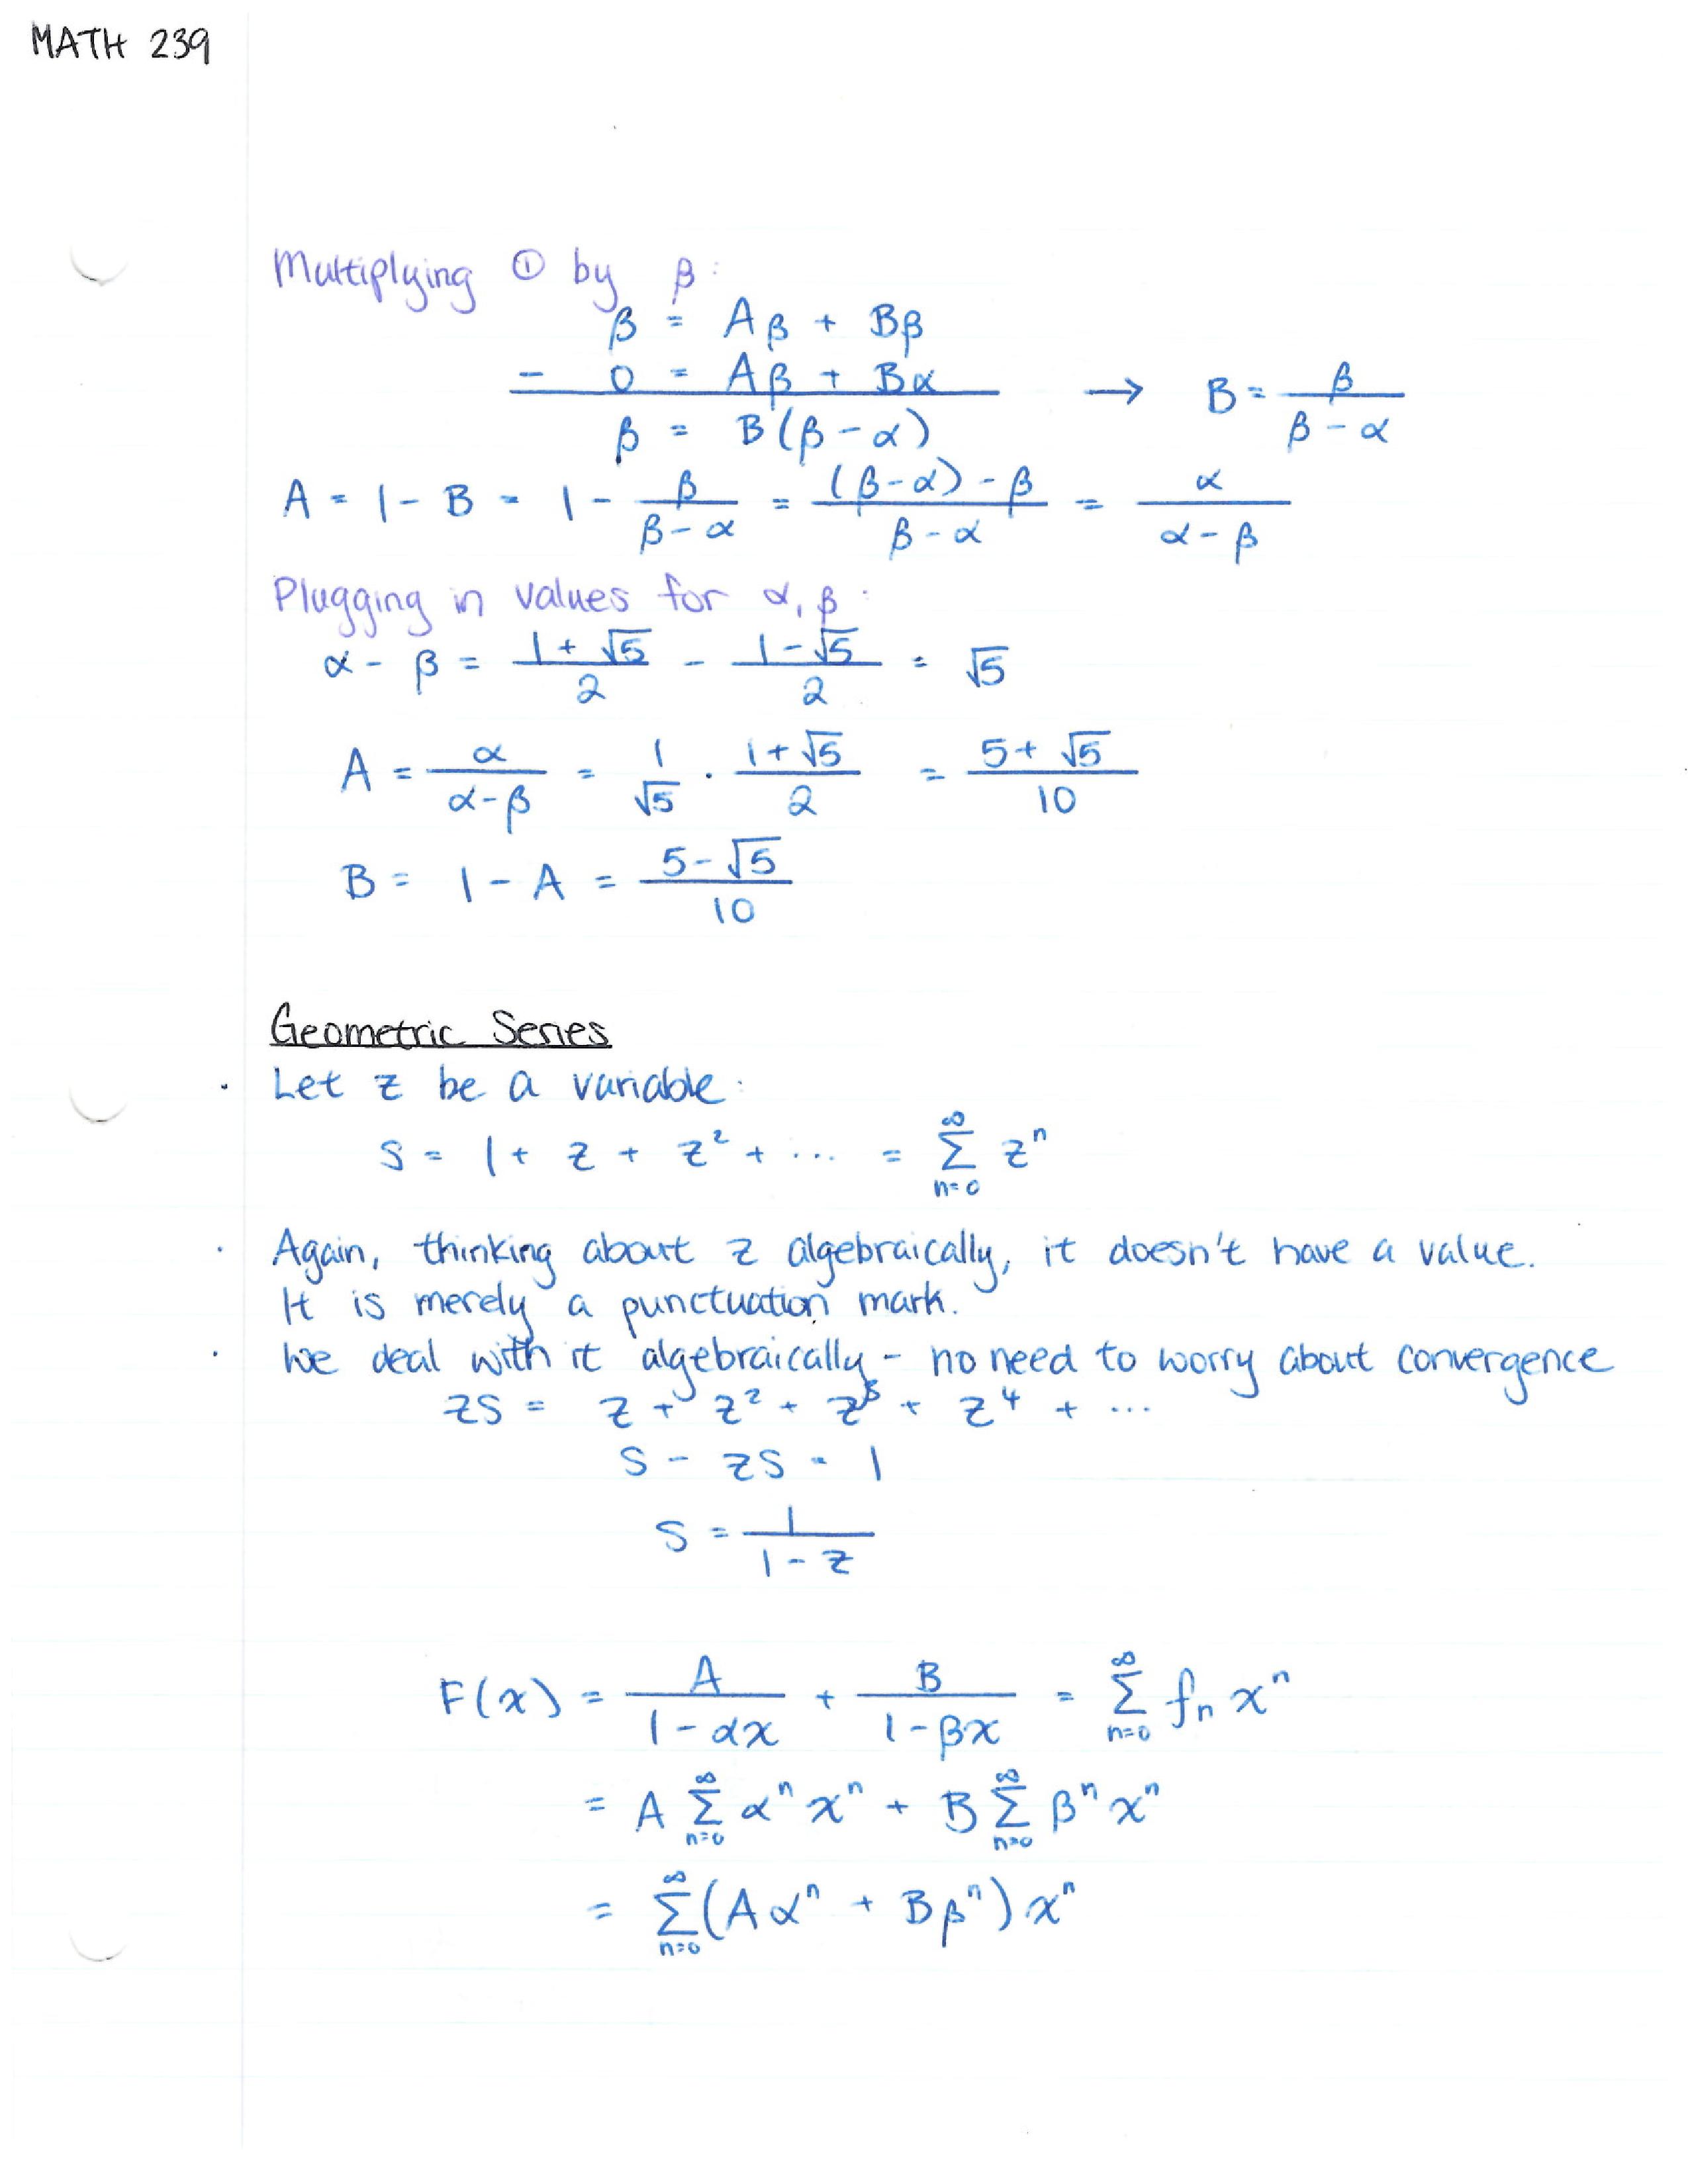 MATH 239
Multiplying ① by β:
β = Aβ + Bβ
− 0 = Aβ + Bα → B = β/(β − α)
β = B(β − α)
A = 1 − B = 1 − β/(β − α) = ((β − α) − β)/(β − α) = α/(α − β)
Plugging in values for α, β:
α − β = (1 + √5)/2 − (1 − √5)/2 = √5
A = α/(α − β) = 1/√5 · (1 + √5)/2 = (5 + √5)/10
B = 1 − A = (5 − √5)/10
Geometric Series
· Let z be a variable:
S = 1 + z + z² + ... = ∑_{n=0}^{∞} zⁿ
· Again, thinking about z algebraically, it doesn't have a value.
It is merely a punctuation mark.
· We deal with it algebraically – no need to worry about convergence
zS = z + z² + z³ + z⁴ + ...
S − zS = 1
S = 1/(1 − z)
F(x) = A/(1 − αx) + B/(1 − βx) = ∑_{n=0}^{∞} fₙ xⁿ
= A ∑_{n=0}^{∞} αⁿ xⁿ + B ∑_{n=0}^{∞} βⁿ xⁿ
= ∑_{n=0}^{∞} (Aαⁿ + Bβⁿ) xⁿ